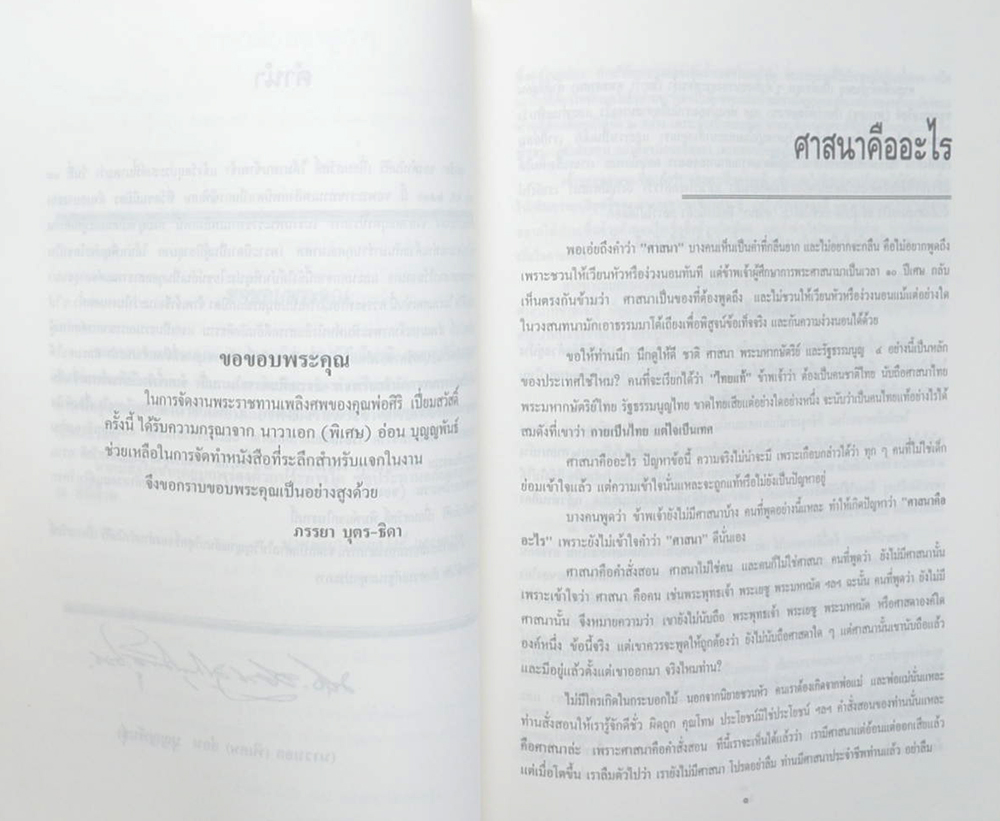 ขอขอบพระคุณ
ในการจัดงานพระราชทานเพลิงศพของคุณพ่อศิริ เปี่ยมสวัสดิ์
ครั้งนี้ ได้รับความกรุณาจาก นาวาเอก (พิเศษ) อ่อน บุญญพันธ์
ช่วยเหลือในการจัดทำหนังสือที่ระลึกสำหรับแจกในงาน
จึงขอกราบขอบพระคุณเป็นอย่างสูงด้วย
ภรรยา บุตร-ธิดา
ศาสนาคืออะไร
พอเอ่ยถึงคำว่า "ศาสนา" บางคนเห็นเป็นคำที่กลืนยาก และไม่อยากจะกลืน คือไม่อยากพูดถึง
เพราะชวนให้เวียนหัวหรือง่วงนอนทันที แต่ข้าพเจ้าผู้ศึกษาการพระศาสนามาเป็นเวลา ๑๐ ปีเศษ กลับ
เห็นตรงกันข้ามว่า ศาสนาเป็นของที่ต้องพูดถึง และไม่ชวนให้เวียนหัวหรือง่วงนอนแม้แต่อย่างใด
ในวงสนทนามักเอาธรรมมาโต้เถียงเพื่อพิสูจน์ข้อเท็จจริง และกันความง่วงนอนได้ด้วย
ขอให้ท่านนึก นึกดูให้ดี ชาติ ศาสนา พระมหากษัตริย์ และรัฐธรรมนูญ ๔ อย่างนี้เป็นหลัก
ของประเทศใช่ไหม? คนที่จะเรียกได้ว่า "ไทยแท้" ข้าพเจ้าว่า ต้องเป็นคนชาติไทย นับถือศาสนาไทย
พระมหากษัตริย์ไทย รัฐธรรมนูญไทย ขาดไทยเสียแต่อย่างใดอย่างหนึ่ง จะนับว่าเป็นคนไทยแท้อย่างไรได้
สมดังที่เขาว่า กายเป็นไทย แต่ใจเป็นเทศ
ศาสนาคืออะไร ปัญหาข้อนี้ ความจริงไม่น่าจะมี เพราะเกือบกล่าวได้ว่า ทุก ๆ คนที่ไม่ใช่เด็ก
ย่อมเข้าใจแล้ว แต่ความเข้าใจนั่นแหละจะถูกแท้หรือไม่ยังเป็นปัญหาอยู่
บางคนพูดว่า ข้าพเจ้ายังไม่มีศาสนาบ้าง คนที่พูดอย่างนี้แหละ ทำให้เกิดปัญหาว่า "ศาสนาคือ
อะไร" เพราะยังไม่เข้าใจคำว่า "ศาสนา" ดีนั่นเอง
ศาสนาคือคำสั่งสอน ศาสนาไม่ใช่คน และคนก็ไม่ใช่ศาสนา คนที่พูดว่า ยังไม่มีศาสนานั้น
เพราะเข้าใจว่า ศาสนา คือคน เช่นพระพุทธเจ้า พระเยซู พระมหหมัด ฯลฯ ฉะนั้น คนที่พูดว่า ยังไม่มี
ศาสนานั้น จึงหมายความว่า เขายังไม่นับถือ พระพุทธเจ้า พระเยซู พระมหหมัด หรือศาสดาองค์ใด
องค์หนึ่ง ข้อนี้จริง แต่เขาควรจะพูดให้ถูกต้องว่า ยังไม่นับถือศาสดาใด ๆ แต่ศาสนานั้นเขานับถือแล้ว
และมีอยู่แล้วตั้งแต่เขาออกมา จริงไหมท่าน?
ไม่มีใครเกิดในกระบอกไม้ นอกจากนิยายชวนหัว คนเราต้องเกิดจากพ่อแม่ และพ่อแม่นั่นแหละ
ท่านสั่งสอนให้เรารู้จักดีชั่ว ผิดถูก คุณโทษ ประโยชน์มิใช่ประโยชน์ ฯลฯ คำสั่งสอนของท่านนั่นแหละ
คือศาสนาล่ะ เพราะศาสนาคือคำสั่งสอน ทีนี้เราจะเห็นได้แล้วว่า เรามีศาสนาแต่อ้อนแต่ออกเสียแล้ว
แต่เมื่อโตขึ้น เราลืมตัวไปว่า เรายังไม่มีศาสนา โปรดอย่าลืม ท่านมีศาสนาประจำชีพท่านแล้ว อย่าลืม
๑